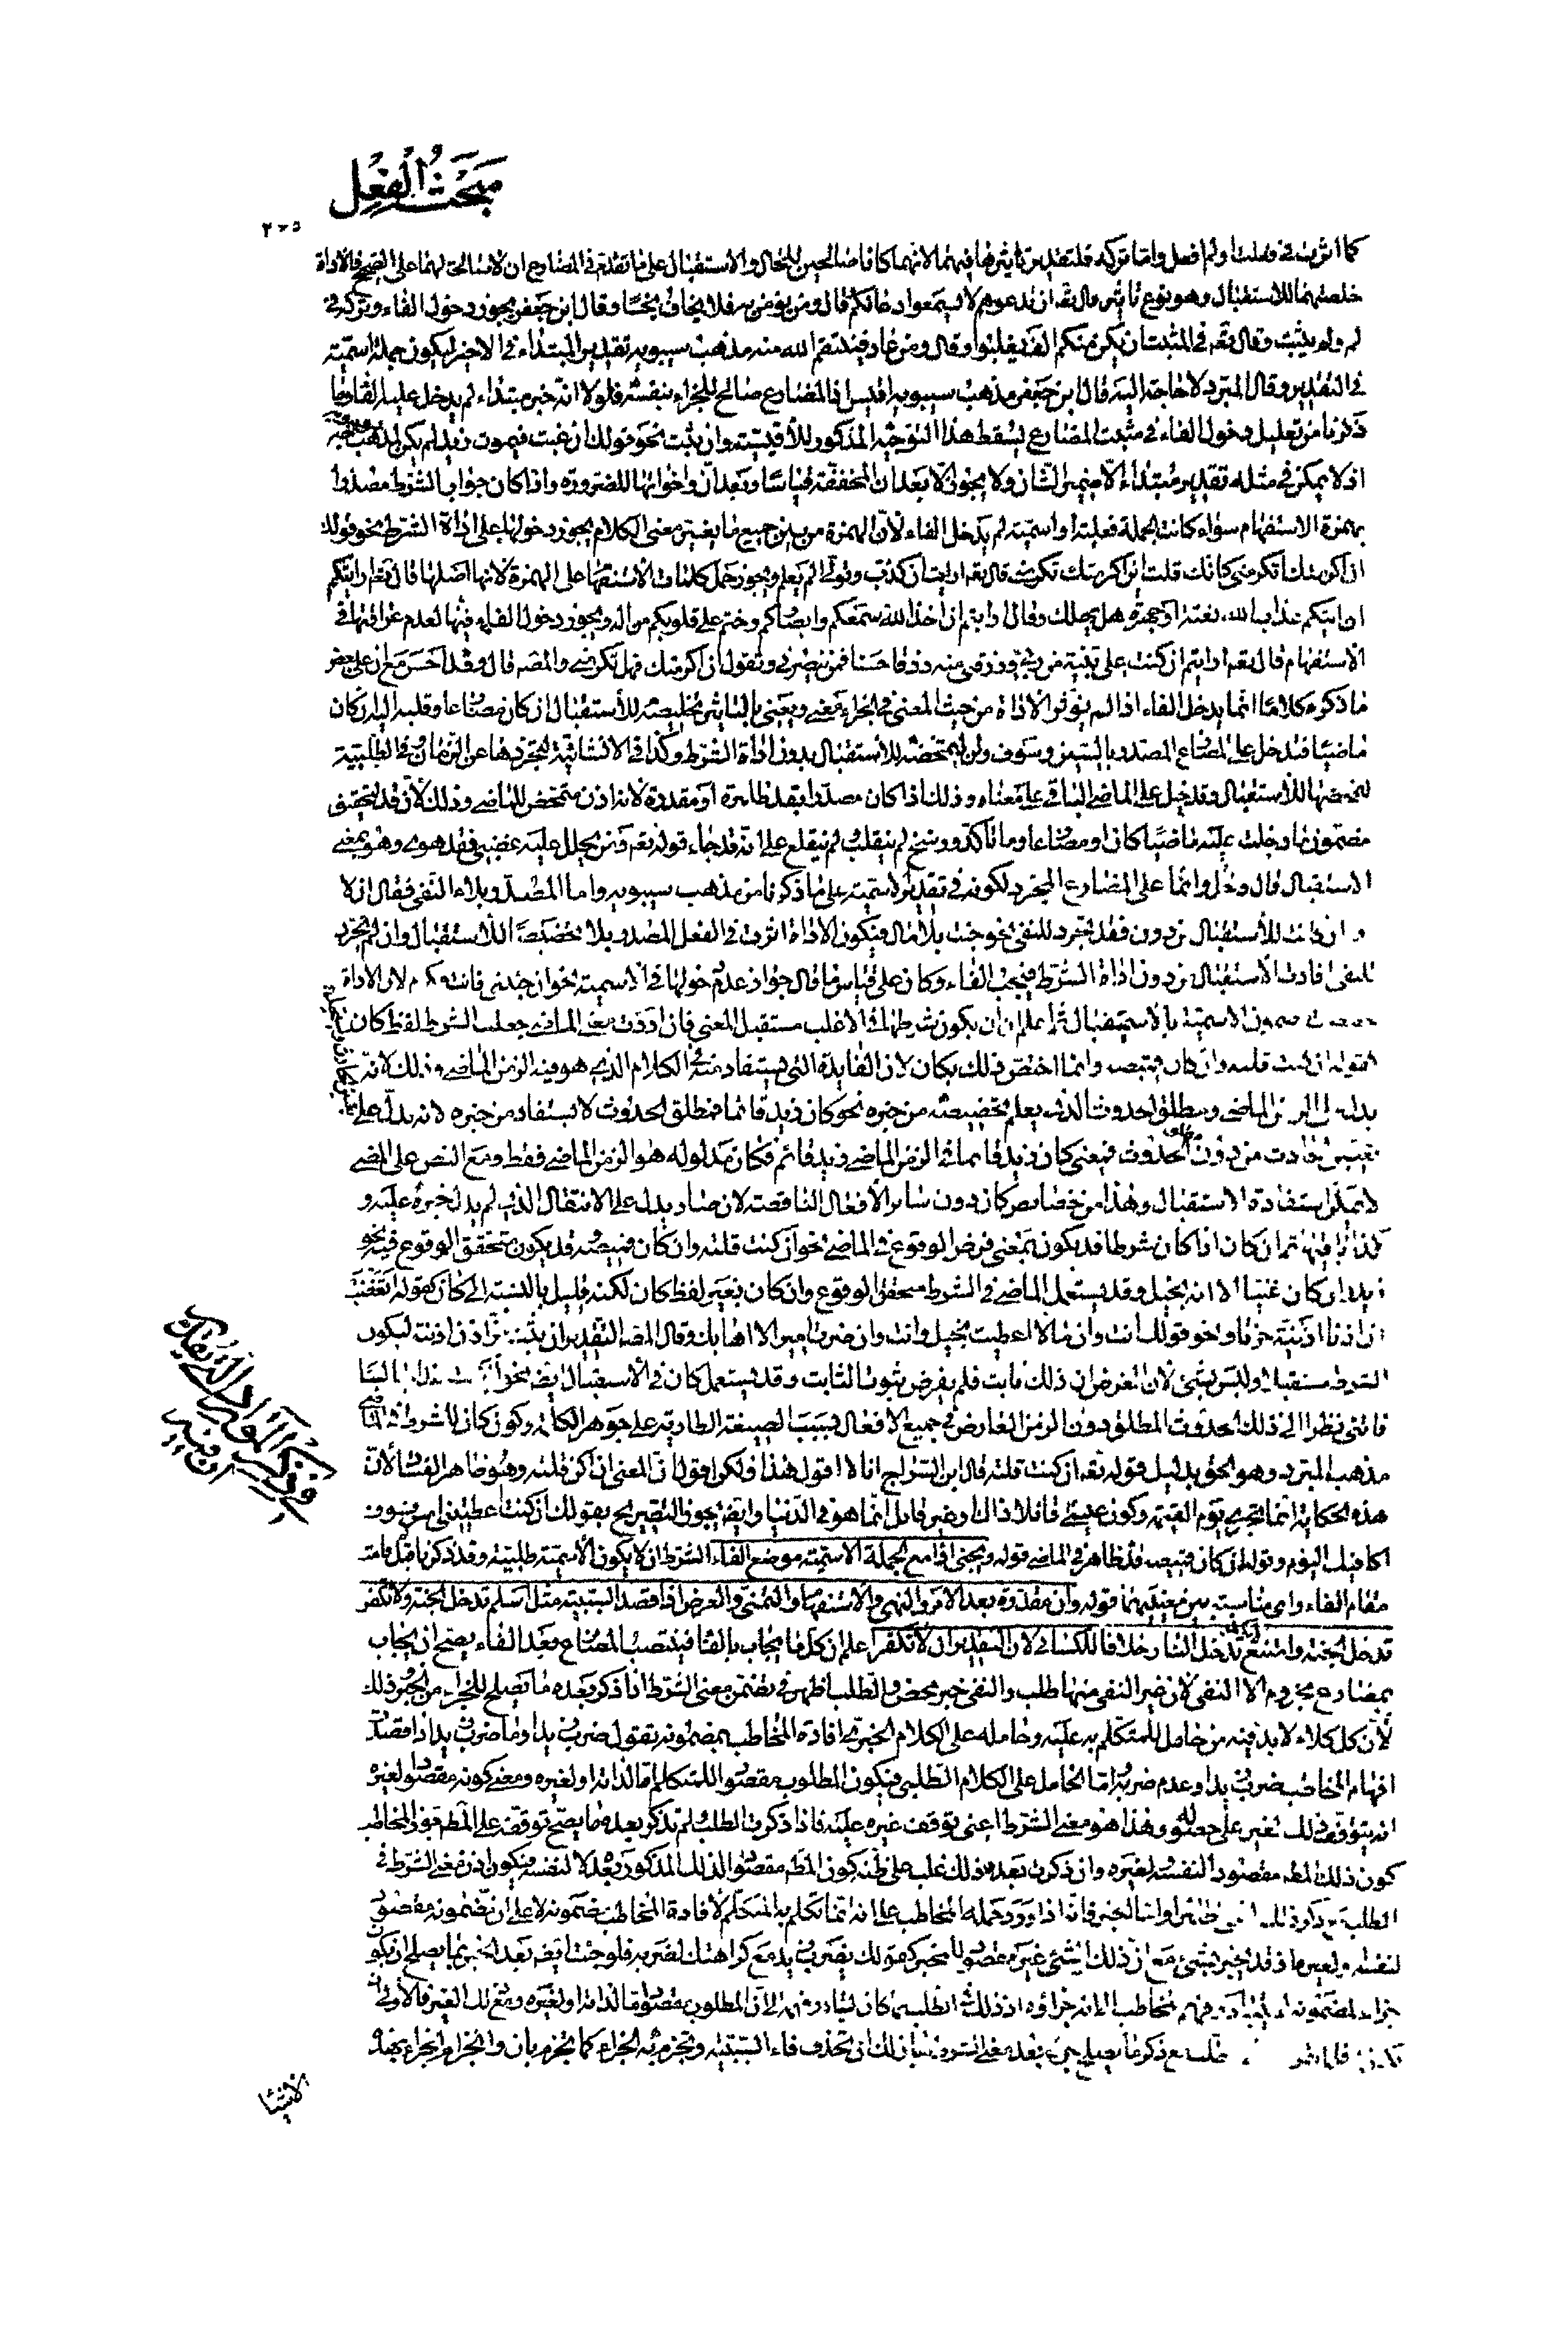 مبحث الفعل
٢٠٥
كما اثرت فى فعلت او لم افعل واما تركه فلتقدير تأثيرها فيهما لانهما كانا صالحين للحال والاستقبال على ما تقدم فى المضارع ان لا صالحة لهما على الصحيح فالاداة
خلصتهما للاستقبال وهو نوع تأثير قال تعه ان تدعوهم لا يسمعوا دعائكم وقال ومن يؤمن بربه فلا يخاف بخسا وقال ابن جعفر يجوز دخول الفاء وتركه فى
لم ولم يثبت وقال تعه فى المثبت ان يكن منكم الف يغلبوا وقال ومن عاد فينتقم الله منه مذهب سيبويه تقدير المبتداء فى الاخير ليكون جملة اسمية
فى التقدير وقال المبرد لا حاجة اليه قال ابن جعفر مذهب سيبويه اقيس اذ المضارع صالح للجزاء بنفسه فلولا انه خبر مبتداء لم يدخل عليه الفاء وما
ذكرنا من تعليل دخول الفاء فى مثبت المضارع يسقط هذا التوجيه المذكور للأقيسية وان ثبت نحو قولك ان غبت فيموت زيد لم يكن لمذهب سيبويه وجه
اذ لا يمكن فى مثله تقدير مبتداء الا ضمير الشان ولا يجوز الا بعد ان المخففة قياسا وبعد ان واخواتها للضرورة واذا كان جواب الشرط مصدرا
بهمزة الاستفهام سواء كانت الجملة فعلية او اسمية لم يدخل الفاء لأن الهمزة من بين جميع ما يغير معنى الكلام يجوز دخولها على اداة الشرط نحو قولك
ان اكرمتك أتكرمنى كانك قلت أان اكرمتك تكرمنى قال تعه ارايت ان كذب وتولى الم يعلم ويجوز حمل كلمات الاستفهام على الهمزة لانها اصلها قال تعه ارايتكم
ان اتيكم عذاب الله بغتة او جهرة هل يهلك وقال ارايتم ان اخذ الله سمعكم وابصاركم وختم على قلوبكم من اله ويجوز دخول الفاء فيها لعدم عراقتها فى
الاستفهام قال تعه ارايتم ان كنت على بينة من ربى ورزقنى منه رزقا حسنا فمن ينصرنى وتقول ان اكرمتك فهل تكرمنى والمصه قال وقد احسن مع ان على بعض
ما ذكره كلاما انما يدخل الفاء اذا لم يؤثر الاداة من حيث المعنى فى الجزاء معنى ويعنى بالتاثير تخليصه للأستقبال ان كان مضارعا وقلبه اليه ان كان
ماضيا فتدخل على المضارع المصدر بالسين وسوف ولن لتمحضه للأستقبال بدون اداة الشرط وكذا فى الانشائية لتجردها عن الزمان وفى الطلبية
لتمحضها للأستقبال وقد يدخل على الماضى الباقى على معناه وذلك اذا كان مصدرا بقد ظاهرة او مقدرة لانه اذن متمحض للماضى وذلك لأن قد لتحقيق
مضمون ما دخلت عليه ماضيا كان او مضارعا وما تأكد ورسخ لم ينقلب لم ينقلع على انه قد جاء قوله تعه ومن يحلل عليه غضبى فقد هوى وهو بمعنى
الاستقبال قال ودخل وانما على المضارع المجرد لكونه فى تقدير الاسمية على ما ذكرنا من مذهب سيبويه واما المصدر بلاء النفى فقال ان لا
وان كانت للأستقبال من دون فقد تجرد للنفى نحو جئت بلا مال فيكون الاداة اثرت فى الفعل المصدر بلا تخصيصا للأستقبال وان لم تجرد
للنفى افادت الاستقبال من دون اداة الشرط فيجب الفاء وكان على قياس ما قال جواز عدم دخولها فى الاسمية نحو ان جئتنى فانت مكرم لان الاداة
مضمون الاسمية بالاستقبال ثم اعلم ان ان يكون شرطها فى الاغلب مستقبل المعنى فان اردت معنى الماضى جعلت الشرط لفظ كان
كقوله ان كنت قلته وان كان قميصه وانما اختص ذلك بكان لان الفائدة التى يستفاد منه فى الكلام الذى هو فيه الزمن الماضى وذلك لانه
يدل على الزمن الماضى ومطلق الحدوث الذى يعلم تخصيصه من خبره نحو كان زيد قائما فمطلق الحدوث لا يستفاد من خبره لانه يدل على
من دون الحدوث فمعنى كان زيد قائما فى الزمن الماضى زيد قائم فكان مدلوله هو الزمن الماضى فقط ومع النص على المضى
لا يمكن استفادة الاستقبال وهذا من خصائص كان دون سائر الأفعال الناقصة لان صار يدل على الانتقال الذى لم يدل خبره عليه و
كذا باقيها ثم ان كان اذا كان شرطا قد يكون بمعنى فرض الوقوع فى الماضى نحو ان كنت قلته وان كان قميصه قد يكون متحقق الوقوع فيه نحو
زيد ان كان غنيا الا انه بخيل وقد يستعمل الماضى فى الشرط متحقق الوقوع وان كان بغير لفظ كان لكنه قليل بالنسبة الى كان كقوله اتغضب
ان اذنا قتيبة حزتا ونحو قولك انت وان مالا اعطيت بخيل وانت وان صرت اميرا لا اهابك وقال المصه التقدير ان يثبت اذن اذنت ليكون
الشرط مستقبلا وليس بشئ لأن الغرض ان ذلك ثابت فلم يفرض ثبوت الثابت وقد يستعمل كان فى الأستقبال ايضه نحو
فاننى نظرا الى ذلك الحدوث المطلق دون الزمن العارض فى جميع الافعال بسبب الصيغة الطارية على جوهر الكلمة وكون كان للشرط فى الماضى
مذهب المبرد وهو الحق بدليل قوله تعه ان كنت قلته قال ابن السراج انا لا اقول هذا ولكن اقول ان المعنى ان اكن قلته وهو ظاهر الفساد لأن
هذه الحكاية انما تجرى يوم القيمة وكون عيسى قائلا ذاك او غير قائل انما هو فى الدنيا وايضه يجوز التصريح بقولك ان كنت اعطيتنى امس فسوف
اكافيك اليوم وقوله ان كان قميصه قد ظاهر فى الماضى قوله ويجئ اذا مع الجملة الاسمية موضع الفاء الشرط ان لا يكون الاسمية طلبية وقد ذكرنا قبل قامة
مقام الفاء واى مناسبة بين معنييهما قوله وان مقدرة بعد الأمر والنهى والاستفهام والتمنى والعرض اذا قصد السببية مثل اسلم تدخل الجنة ولا تكفر
تدخل الجنة وامتنع لا تكفر تدخل النار خلافا للكسائى لان التقدير ان لا تكفر اعلم ان كل ما يجاب بالفاء فينتصب المضارع بعد الفاء يصح ان يجاب
بمضارع مجزوم الا النفى لأن غير النفى منها طلب والنفى خبر محض والطلب اظهر فى تضمن معنى الشرط اذا ذكر بعده ما يصلح للجزاء من الخبر وذلك
لأن كل كلام لا بد فيه من حامل للمتكلم به عليه وحامله على الكلام الخبرى افادة المخاطب بمضمونه تقول ضرب زيد او ما ضرب زيد اذا قصدت
افهام المخاطب ضرب زيد او عدم ضربه اما الحامل على الكلام الطلبى فيكون المطلوب مقصودا للمتكلم اما لذاته او لغيره ومعنى كونه مقصودا لغيره
انه يتوقف ذلك الغير على حصوله وهذا هو معنى الشرط اعنى توقف غيره عليه فاذا ذكرت الطلب ولم تذكر بعده ما يصح توقفه على المطلوب جوز المخاطب
كون ذلك المط مقصودا لنفسه ولغيره وان ذكرت بعده ذلك غلب على ظنه كون المط مقصودا لذلك المذكور بعده لا لنفسه فيكون اذن معنى الشرط فى
الطلب مع ذكر ذلك ظاهرا واما الخبر فانه اذا ورد حمله المخاطب على انه انما تكلم به المتكلم لأفادة المخاطب مضمونه لا على ان مضمونه مقصود
لنفسه او لغيره اذ قد يخبر بشئ مع ان ذلك الشئ غير مقصود للمخبر كقولك يضرب زيد مع كراهتك لضربه فلو جئت ايضه بعد الخبر بما يصلح ان يكون
جزاء لمضمونه لم يتبادر فهم المخاطب الى انه جزاؤه اذ ذلك فى الطلب انما كان لتبادر فهمه الى ان المطلوب مقصود اما لذاته او لغيره ومع ذكر الغير فالأولى
طلب مع ذكر ما يصلح جزاء بعده معنى الشرط جاز لك ان تحذف فاء السببية وتجزم به الجزاء كما تجزم بان وانجزام الجزاء بهذه
الاشياء